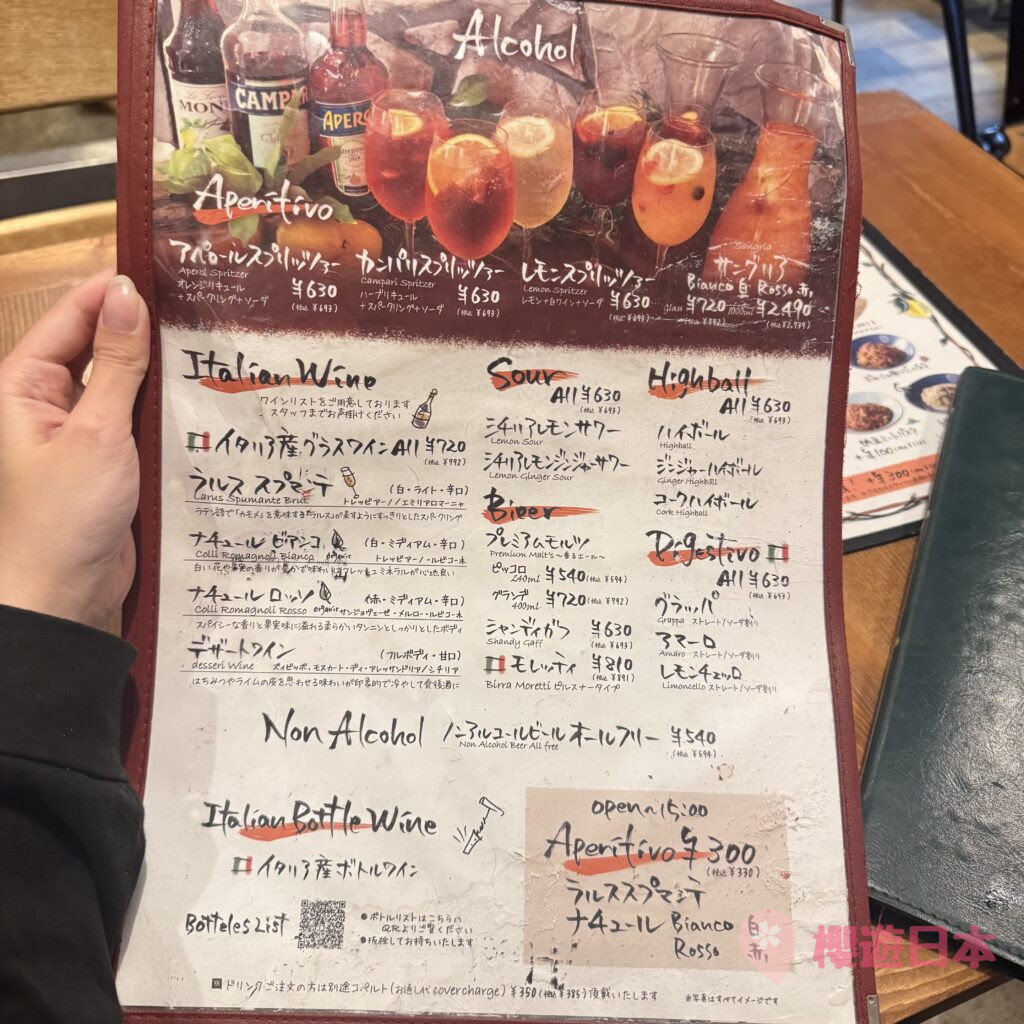 Alcohol
MONIN
CAMPARI
APEROL
Aperitivo
アペロールスプリッツァー
Aperol Spritzer
オレンジリキュール
+スパークリング+ソーダ
¥630
(税込 ¥693)
カンパリスプリッツァー
Campari Spritzer
ハーブリキュール
+スパークリング+ソーダ
¥630
(税込 ¥693)
レモンスプリッツァー
Lemon Spritzer
レモン+白ワイン+ソーダ
¥630
(税込 ¥693)
Sangria
サングリア
Bianco 白 Rosso 赤
Glass ¥720 1000ml ¥2,490
(税込 ¥792) (税込 ¥2,739)
Italian Wine
ワインリストをご用意しております
スタッフまでお声掛けください
イタリア産グラスワイン All ¥720
(税込 ¥992)
ラルス スプマンテ (白・ライト・辛口)
Larus Spumante Brut トレッビアーノ/エミリアロマーニャ
ラテン語で「カモメ」を意味する「ラルス」が表すようにすっきりとしたスパークリング
ナチュール ビアンコ (白・ミディアム・辛口)
Colli Romagnoli Bianca organic トレッビアーノ・ルビコーネ
ナチュール ロッソ (赤・ミディアム・辛口)
Colli Romagnoli Rosso organic サンジョヴェーゼ・メルロー・ルビコーネ
スパイシーな香りと果実味に溢れる柔らかいタンニンとしっかりとしたボディ
デザートワイン (フルボディ・甘口)
desseri Wine ズィビッボ、モスカート・ディ・アレッサンドリア/シチリア
はちみつやライムの皮を思わせる味わいが印象的で冷やして食後酒に
Sour
All ¥630
(税込 ¥693)
シチリアレモンサワー
Lemon Sour
シチリアレモンジンジャーサワー
Lemon Ginger Sour
Bieer
プレミアムモルツ
Premium Malt's〜香るエール〜
ピッコロ
240ml ¥540 (税込 ¥594)
グランデ
400ml ¥720 (税込 ¥992)
シャンディガフ ¥630
Shandy Gaff (税込 ¥693)
モレッティ ¥810
(税込 ¥891)
Birra Moretti ピルスナータイプ
Highball
All ¥630
(税込 ¥693)
ハイボール
Highball
ジンジャーハイボール
Ginger Highball
コークハイボール
Cork Highball
Digestivo
All ¥630
(税込 ¥693)
グラッパ
Grappa ストレート/ソーダ割り
アマーロ
Amaro ストレート/ソーダ割り
レモンチェッロ
Limoncello ストレート/ソーダ割り
Non Alcohol ノンアルコールビール オールフリー ¥540
Non Alcohol Beer All free (税込 ¥594)
Italian Bottle Wine
イタリア産ボトルワイン
Botteles List
●ボトルリストはこちらの
QRよりご覧ください
●抜栓してお持ちいたします
open〜15:00
Aperitivo ¥300
(税込 ¥330)
ラルススプマンテ
ナチュール Bianco 白
Rosso 赤
※ドリンクご注文の方は別途コペルト(お通し代 cover charge) ¥350 (税込 ¥385) 頂戴いたします
※写真はすべてイメージです
+¥100
+¥300
櫻遊日本